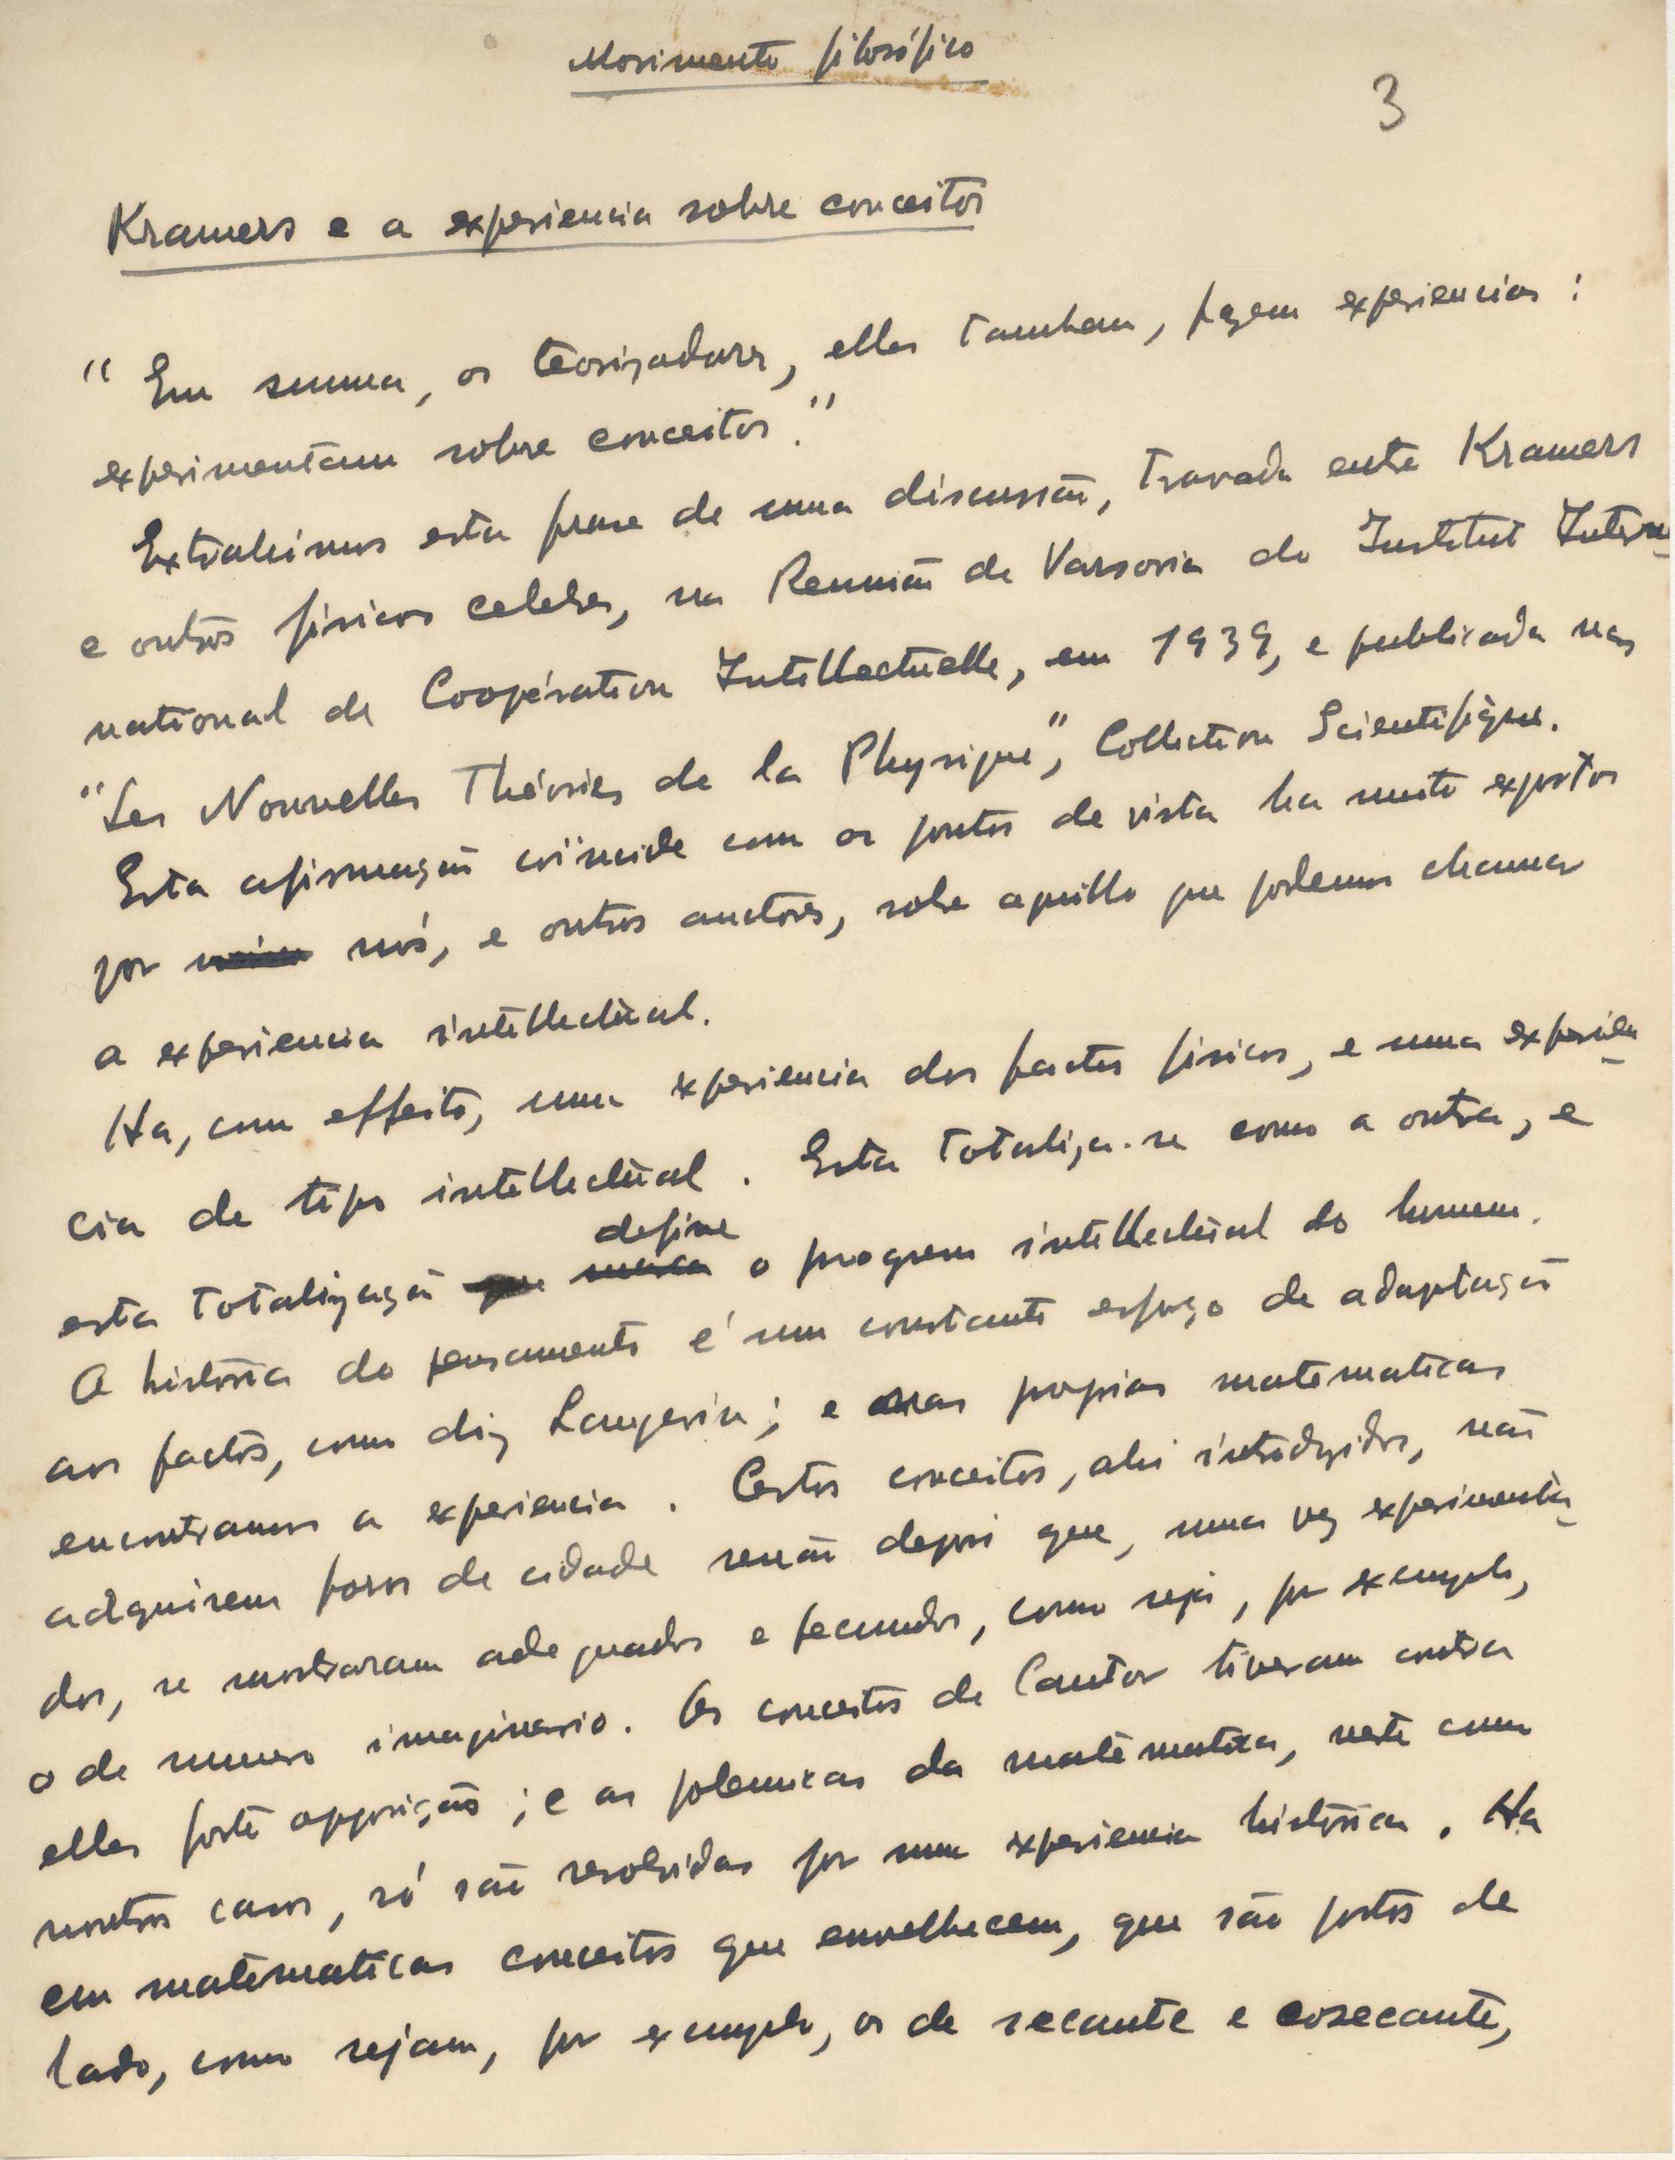 Movimento filosófico
3
Kramers e a experiencia sobre conceitos
"Em summa, os teorizadores, elles tambem, fazem experiencias:
experimentam sobre conceitos."
Extrahimos esta frase de uma discussão, travada entre Kramers
e outros físicos celebres, na Reunião de Varsovia do Institut Inter-
national de Coopération Intellectuelle, em 1939, e publicada nas
"Les Nouvelles Théories de la Physique", Collection Scientifique.
Esta afirmação coïncide com os pontos de vista ha muito expostos
por nós, e outros auctores, sobre aquillo que podemos chamar
a experiencia intellectual.
Ha, com effeito, uma experiencia dos factos físicos, e uma experien-
cia de tipo intellectual. Esta totaliza-se como a outra, e
define
esta totalização que marca o progresso intellectual do homem.
A história do pensamento é um constante esforço de adaptação
aos factos, como diz Langevin; e nas proprias matematicas
encontramos a experiencia. Certos conceitos, ahi introduzidos, não
adquirem foros de cidade senão depois que, uma vez experimenta-
dos, se mostraram adequados e fecundos, como seja, por exemplo,
o de numero imaginario. Os conceitos de Cantor tiveram contra
elles forte opposição; e as polemicas da matématica, neste como
noutros casos, só são resolvidas por uma experiencia histórica. Ha
em matématicas conceitos que envelhecem, que são postos de
lado, como sejam, por exemplo, os de secante e cosecante,